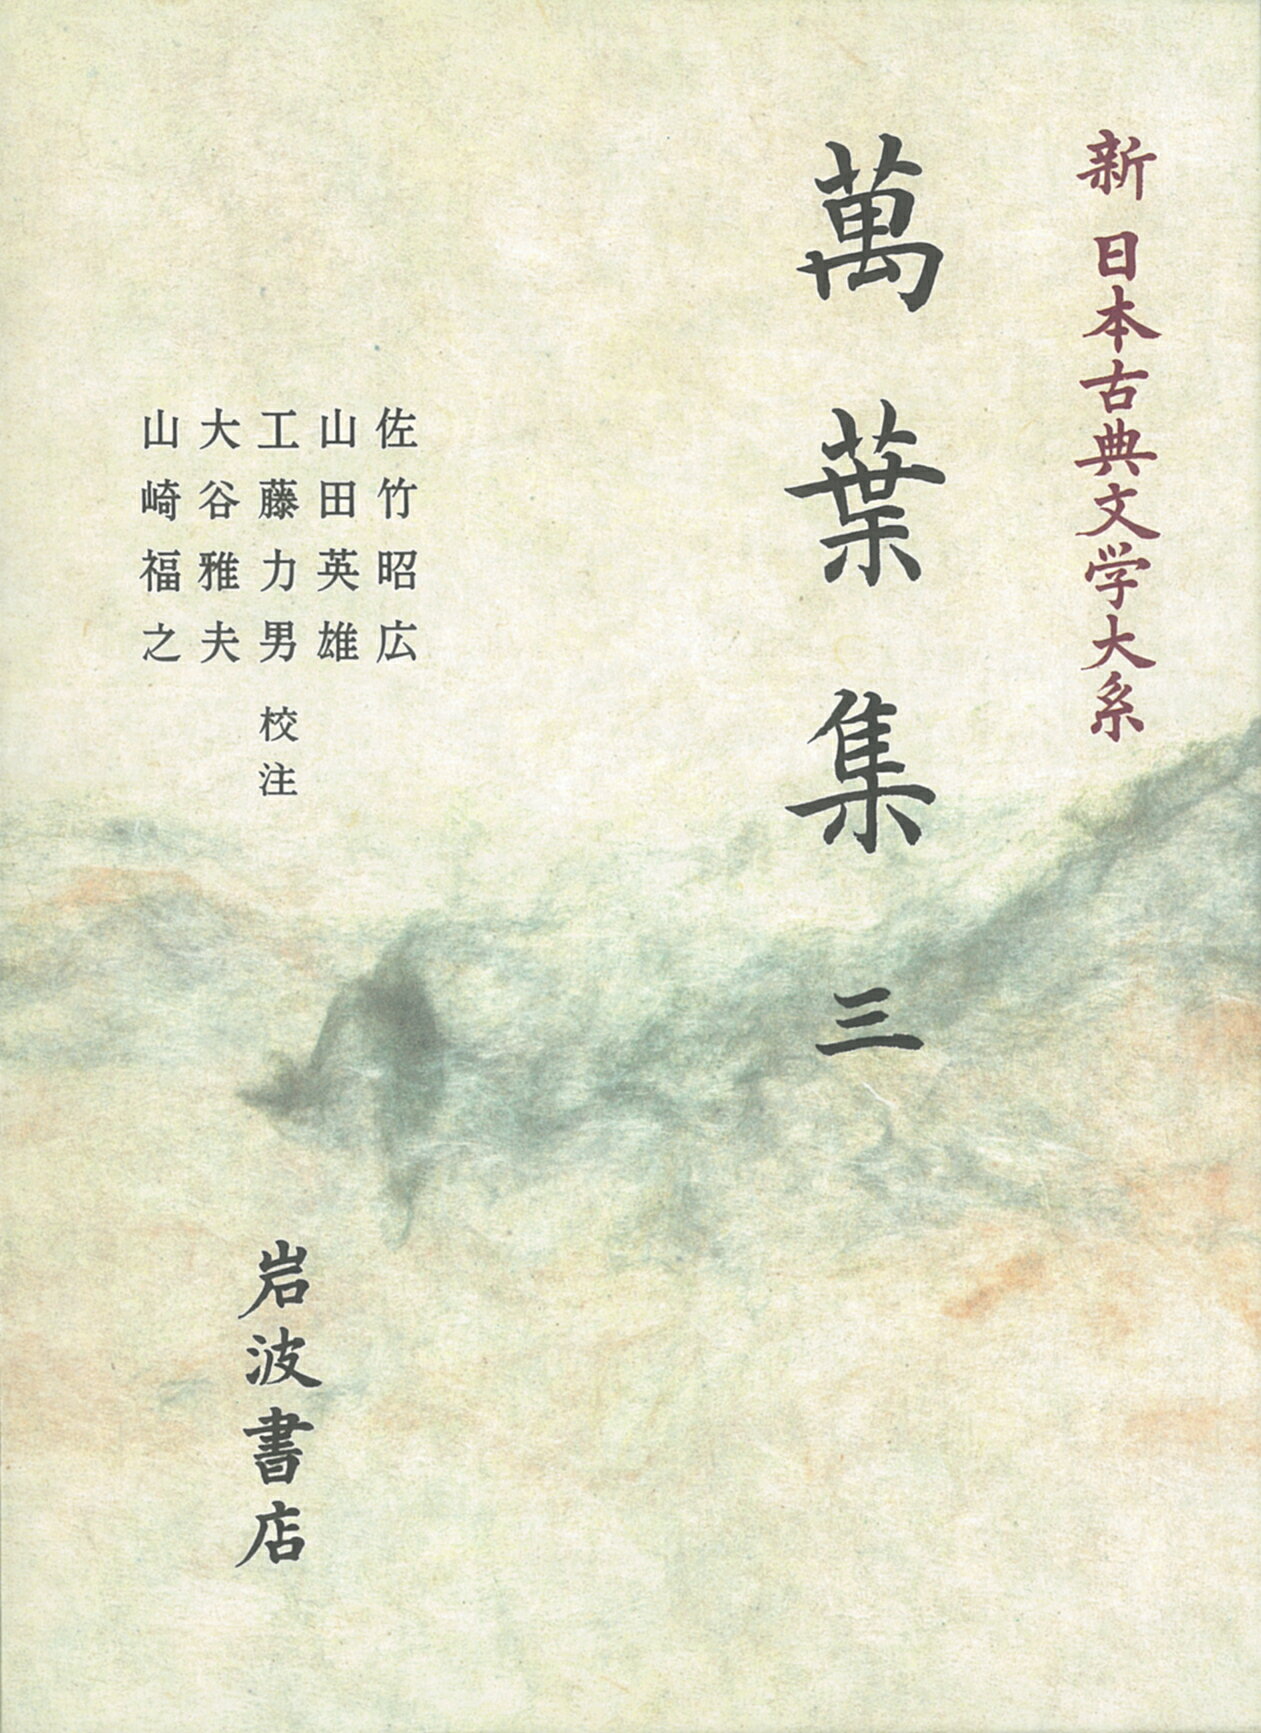 新 日本古典文学大系
萬葉集 三
佐竹昭広
山田英雄
工藤力男 校注
大谷雅夫
山崎福之
岩波書店